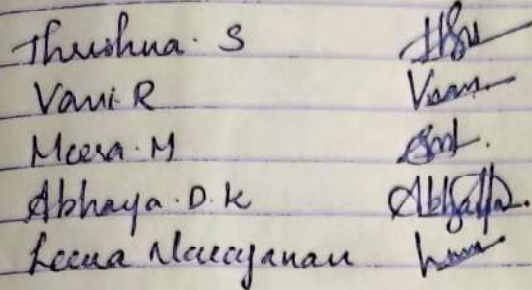 Thrishna. S
Vani R
Meera. M
Abhaya. D. K Abhaya.
Leena Narayanan